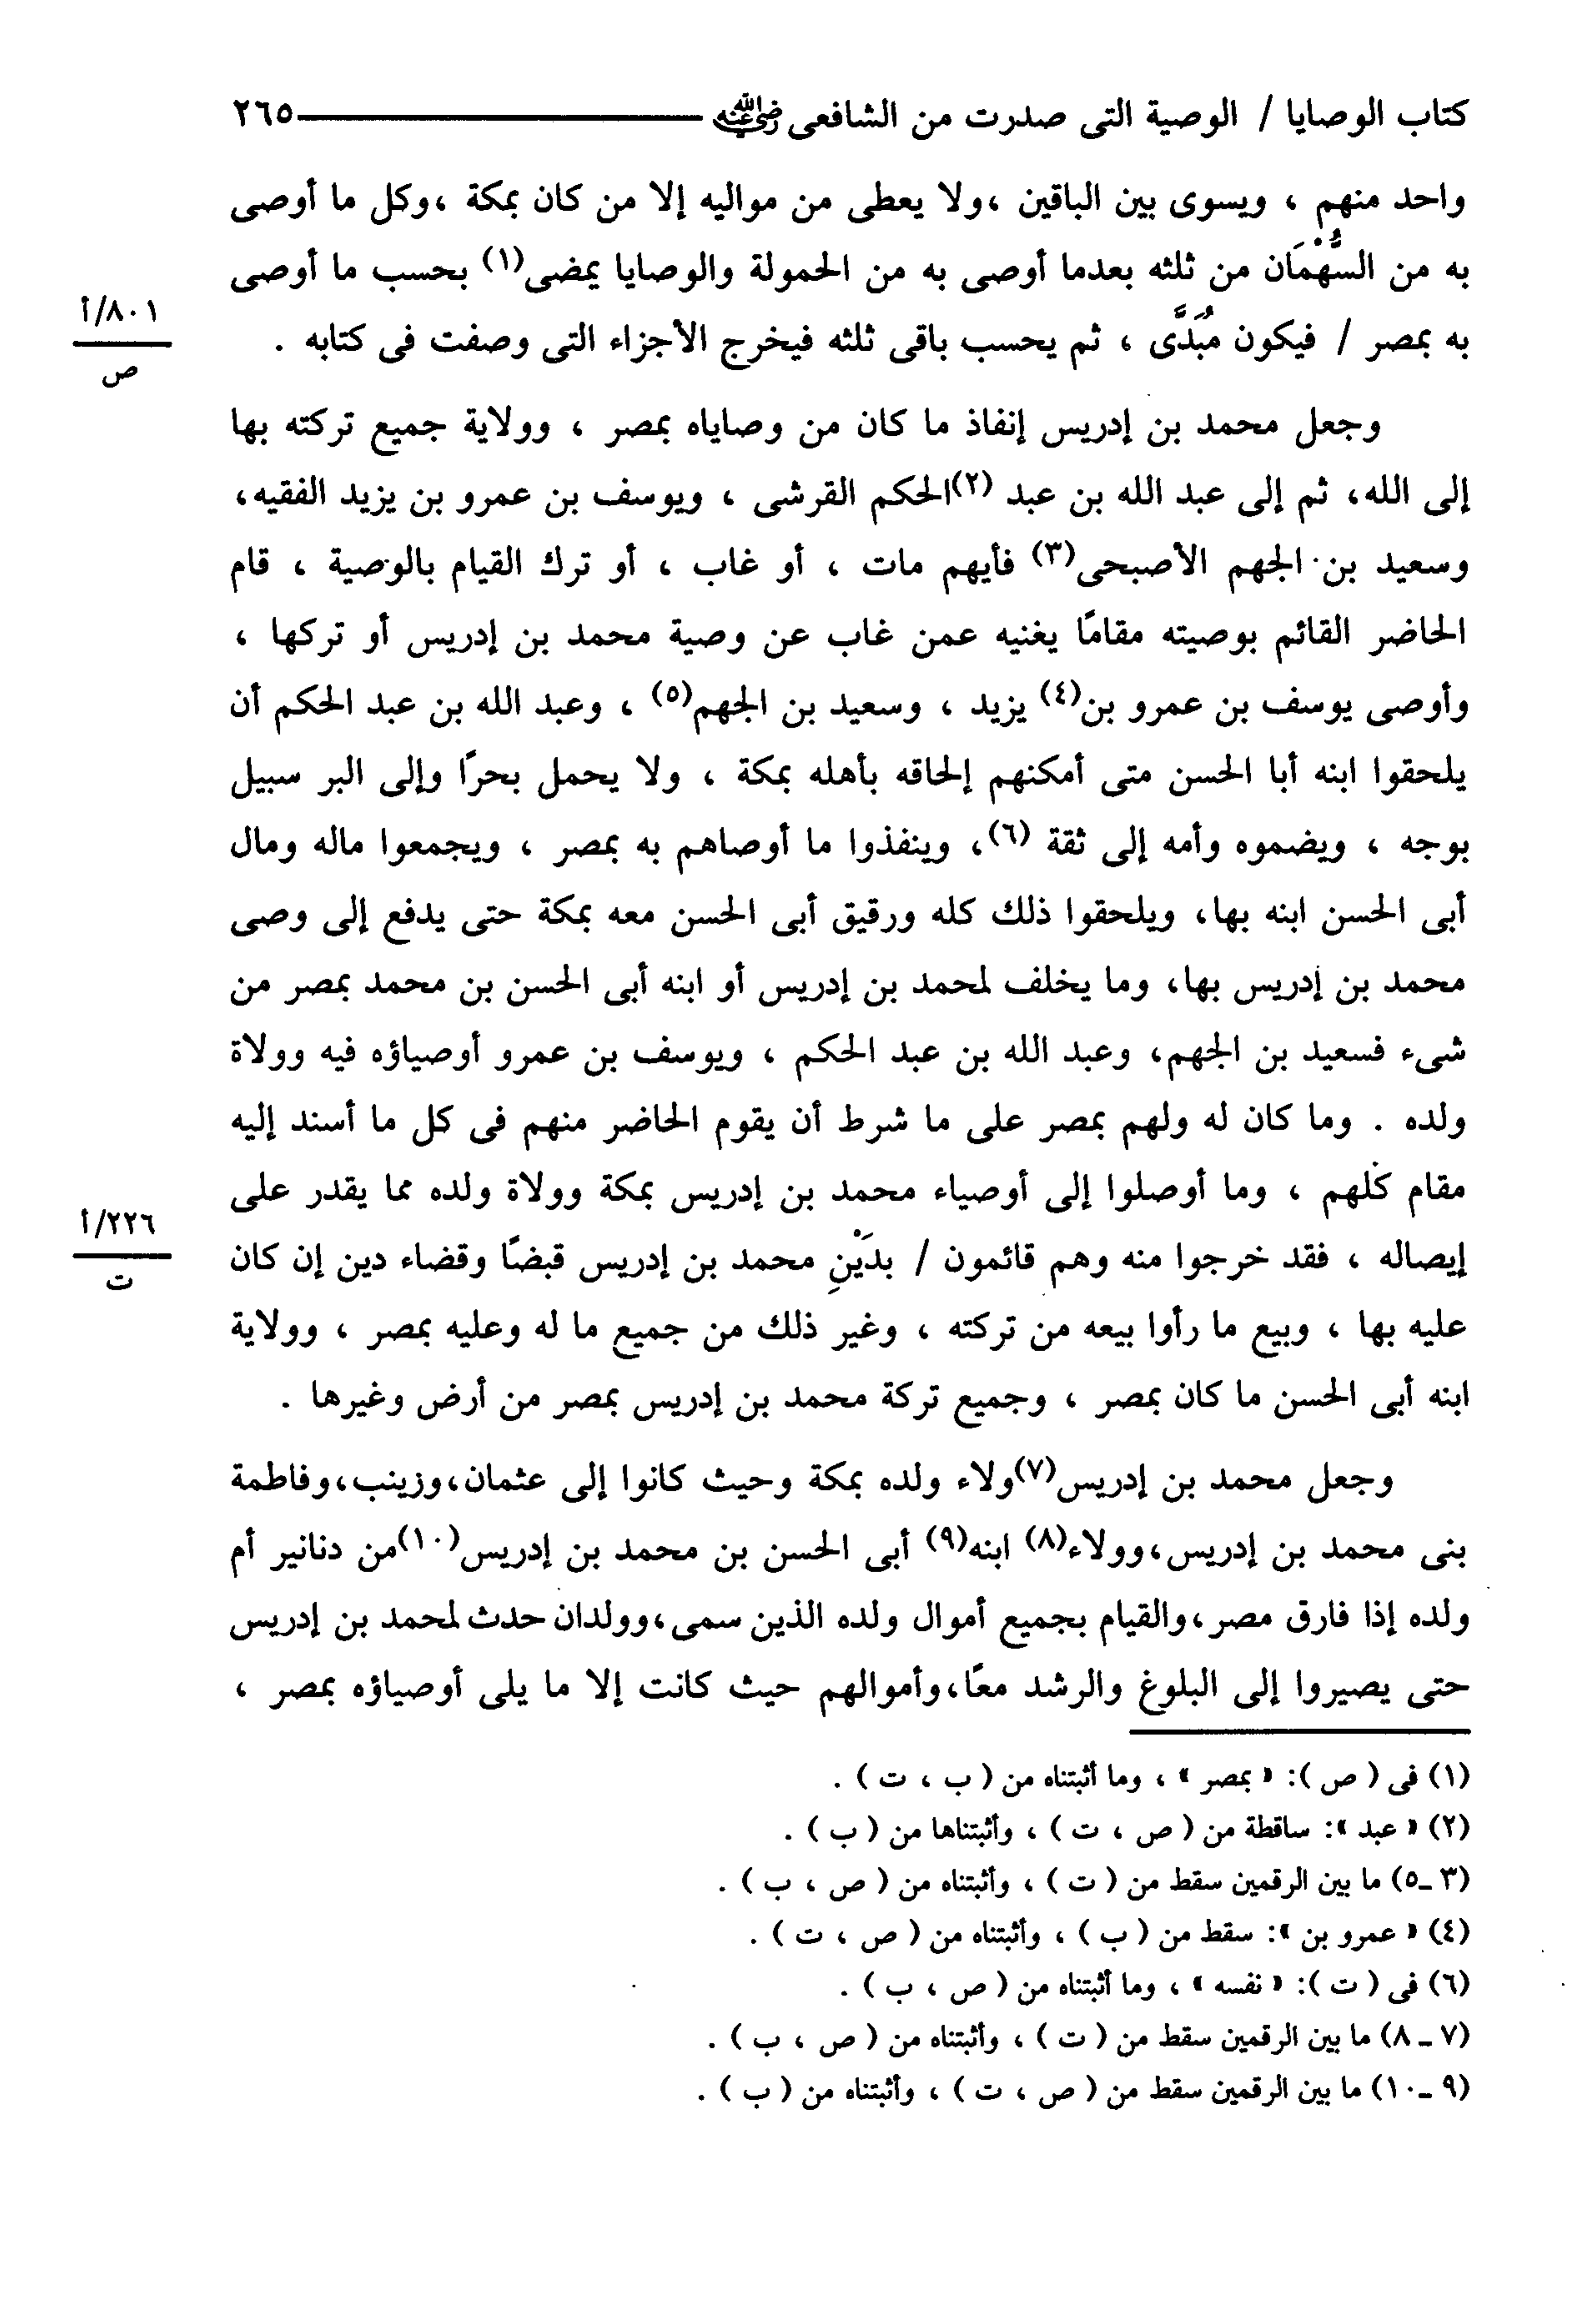 كتاب الوصايا / الوصية التى صدرت من الشافعى رضي الله عنه ٢٦٥
واحد منهم ، ويسوى بين الباقين ،ولا يعطى من مواليه إلا من كان بمكة ،وكل ما أوصى
به من السُّهْمَان من ثلثه بعدما أوصى به من الحمولة والوصايا يمضى(١) بحسب ما أوصى
٨٠١/أ
ص
به بمصر / فيكون مُبَدًّى ، ثم يحسب باقى ثلثه فيخرج الأجزاء التى وصفت فى كتابه .
وجعل محمد بن إدريس إنفاذ ما كان من وصاياه بمصر ، وولاية جميع تركته بها
إلى الله، ثم إلى عبد الله بن عبد (٢)الحكم القرشى ، ويوسف بن عمرو بن يزيد الفقيه،
وسعيد بن الجهم الأصبحى(٣) فأيهم مات ، أو غاب ، أو ترك القيام بالوصية ، قام
الحاضر القائم بوصيته مقامًا يغنيه عمن غاب عن وصية محمد بن إدريس أو تركها ،
وأوصى يوسف بن عمرو بن(٤) يزيد ، وسعيد بن الجهم(٥) ، وعبد الله بن عبد الحكم أن
يلحقوا ابنه أبا الحسن متى أمكنهم إلحاقه بأهله بمكة ، ولا يحمل بحرًا وإلى البر سبيل
بوجه ، ويضموه وأمه إلى ثقة (٦)، وينفذوا ما أوصاهم به بمصر ، ويجمعوا ماله ومال
أبى الحسن ابنه بها، ويلحقوا ذلك كله ورقيق أبى الحسن معه بمكة حتى يدفع إلى وصى
محمد بن إدريس بها، وما يخلف لمحمد بن إدريس أو ابنه أبى الحسن بن محمد بمصر من
شىء فسعيد بن الجهم، وعبد الله بن عبد الحكم ، ويوسف بن عمرو أوصياؤه فيه وولاة
ولده . وما كان له ولهم بمصر على ما شرط أن يقوم الحاضر منهم فى كل ما أسند إليه
مقام كلهم ، وما أوصلوا إلى أوصياء محمد بن إدريس بمكة وولاة ولده مما يقدر على
٢٢٦/أ
ت
إيصاله ، فقد خرجوا منه وهم قائمون / بدَيْنِ محمد بن إدريس قبضًا وقضاء دين إن كان
عليه بها ، وبيع ما رأوا بيعه من تركته ، وغير ذلك من جميع ما له وعليه بمصر ، وولاية
ابنه أبى الحسن ما كان بمصر ، وجميع تركة محمد بن إدريس بمصر من أرض وغيرها .
وجعل محمد بن إدريس(٧)ولاء ولده بمكة وحيث كانوا إلى عثمان،وزينب،وفاطمة
بنى محمد بن إدريس،وولاء(٨) ابنه(٩) أبى الحسن بن محمد بن إدريس(١٠)من دنانير أم
ولده إذا فارق مصر،والقيام بجميع أموال ولده الذين سمى،وولدان حدث لمحمد بن إدريس
حتى يصيروا إلى البلوغ والرشد معًا،وأموالهم حيث كانت إلا ما يلى أوصياؤه بمصر ،
(١) فى ( ص ): « بمصر » ، وما أثبتناه من ( ب ، ت ) .
(٢) « عبد »: ساقطة من ( ص ، ت ) ، وأثبتناها من ( ب ) .
(٣ـ٥) ما بين الرقمين سقط من ( ت ) ، وأثبتناه من ( ص ، ب ) .
(٤) « عمرو بن »: سقط من ( ب ) ، وأثبتناه من ( ص ، ت ) .
(٦) فى ( ت ): « نفسه » ، وما أثبتناه من ( ص ، ب ) .
(٧ـ ٨) ما بين الرقمين سقط من ( ت ) ، وأثبتناه من ( ص ، ب ) .
(٩ ـ١٠) ما بين الرقمين سقط من ( ص ، ت ) ، وأثبتناه من ( ب ) .